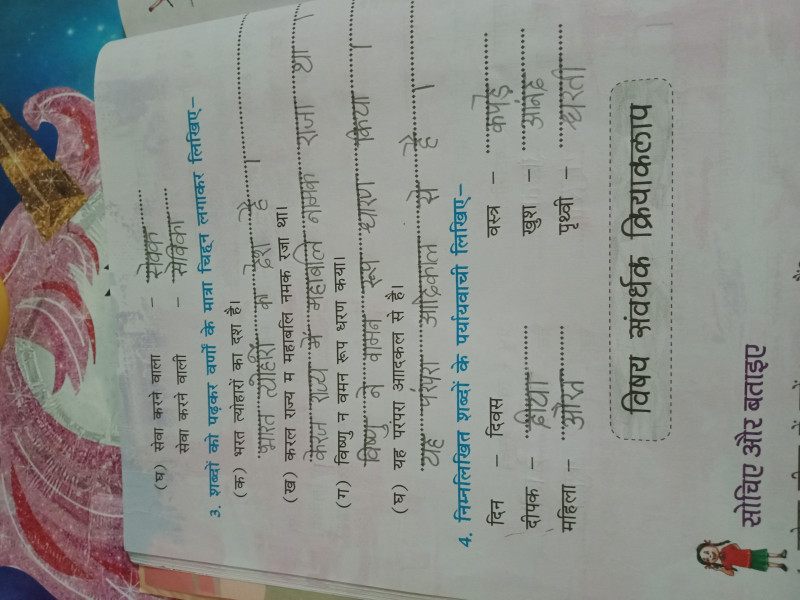 (घ) सेवा करने वाला – सेवक
सेवा करने वाली – सेविका
3. शब्दों को पढ़कर वर्णों के मात्रा चिह्न लगाकर लिखिए–
(क) भरत त्योहारों का दश है।
भारत त्योहारों का देश है।
(ख) करल राज्य म महाबलि नमक रजा था।
केरल राज्य में महाबलि नामक राजा था।
(ग) विष्णु न वमन रूप धरण कया।
विष्णु ने वामन रूप धारण किया।
(घ) यह परंपरा आदिकल से है।
यह परंपरा आदिकाल से है।
4. निम्नलिखित शब्दों के पर्यायवाची लिखिए–
दिन – दिवस वस्त्र – कपड़े
दीपक – दीया खुश – आनंद
महिला – औरत पृथ्वी – धरती
विषय संवर्धक क्रियाकलाप
सोचिए और बताइए